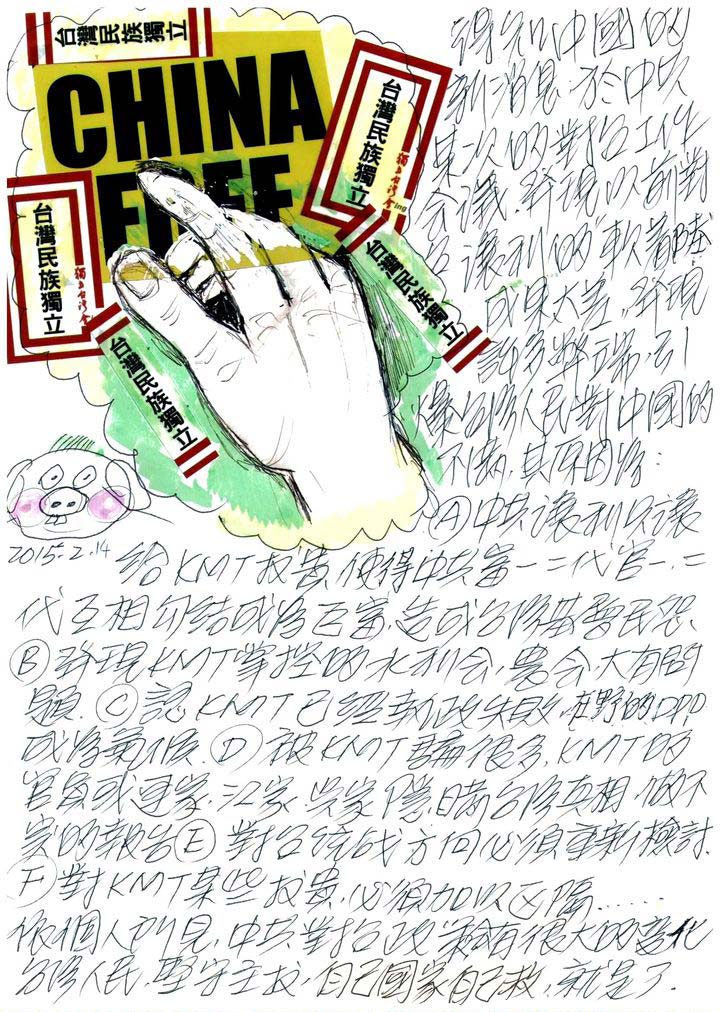 台灣民族獨立
CHINA
FREE
台灣民族獨立
獨立台灣會
ing
台灣民族獨立
獨立台灣會
台灣民族獨立
台灣民族獨立
得知中國的
消息,於中共
的對台工作
會議,發現以前對
台讓利的軟著陸
成果大差,發現
許多弊端,引
爆台灣人民對中國的
不滿,其原因為:
Ⓐ中共讓利只讓
2015.2.14
給KMT權貴,使得中共富一二代官一.二
代互相勾結成為巨富,造成台灣基層民怨.
Ⓑ發現KMT掌控的水利會,農會,大有問
題.Ⓒ認KMT已經執政失敗,在野的DPP
成為氣候.Ⓓ被KMT騙很多,KMT的
官員或連家,江家,吳家隱瞞台灣真相,做不
實的報告Ⓔ對台統战方向必須重新檢討.
Ⓕ對KMT某些权貴,必須加以區隔......
依個人所見,中共對台政策有很大的變化
台灣人民,堅守主权,自己國家自己救,就是了.